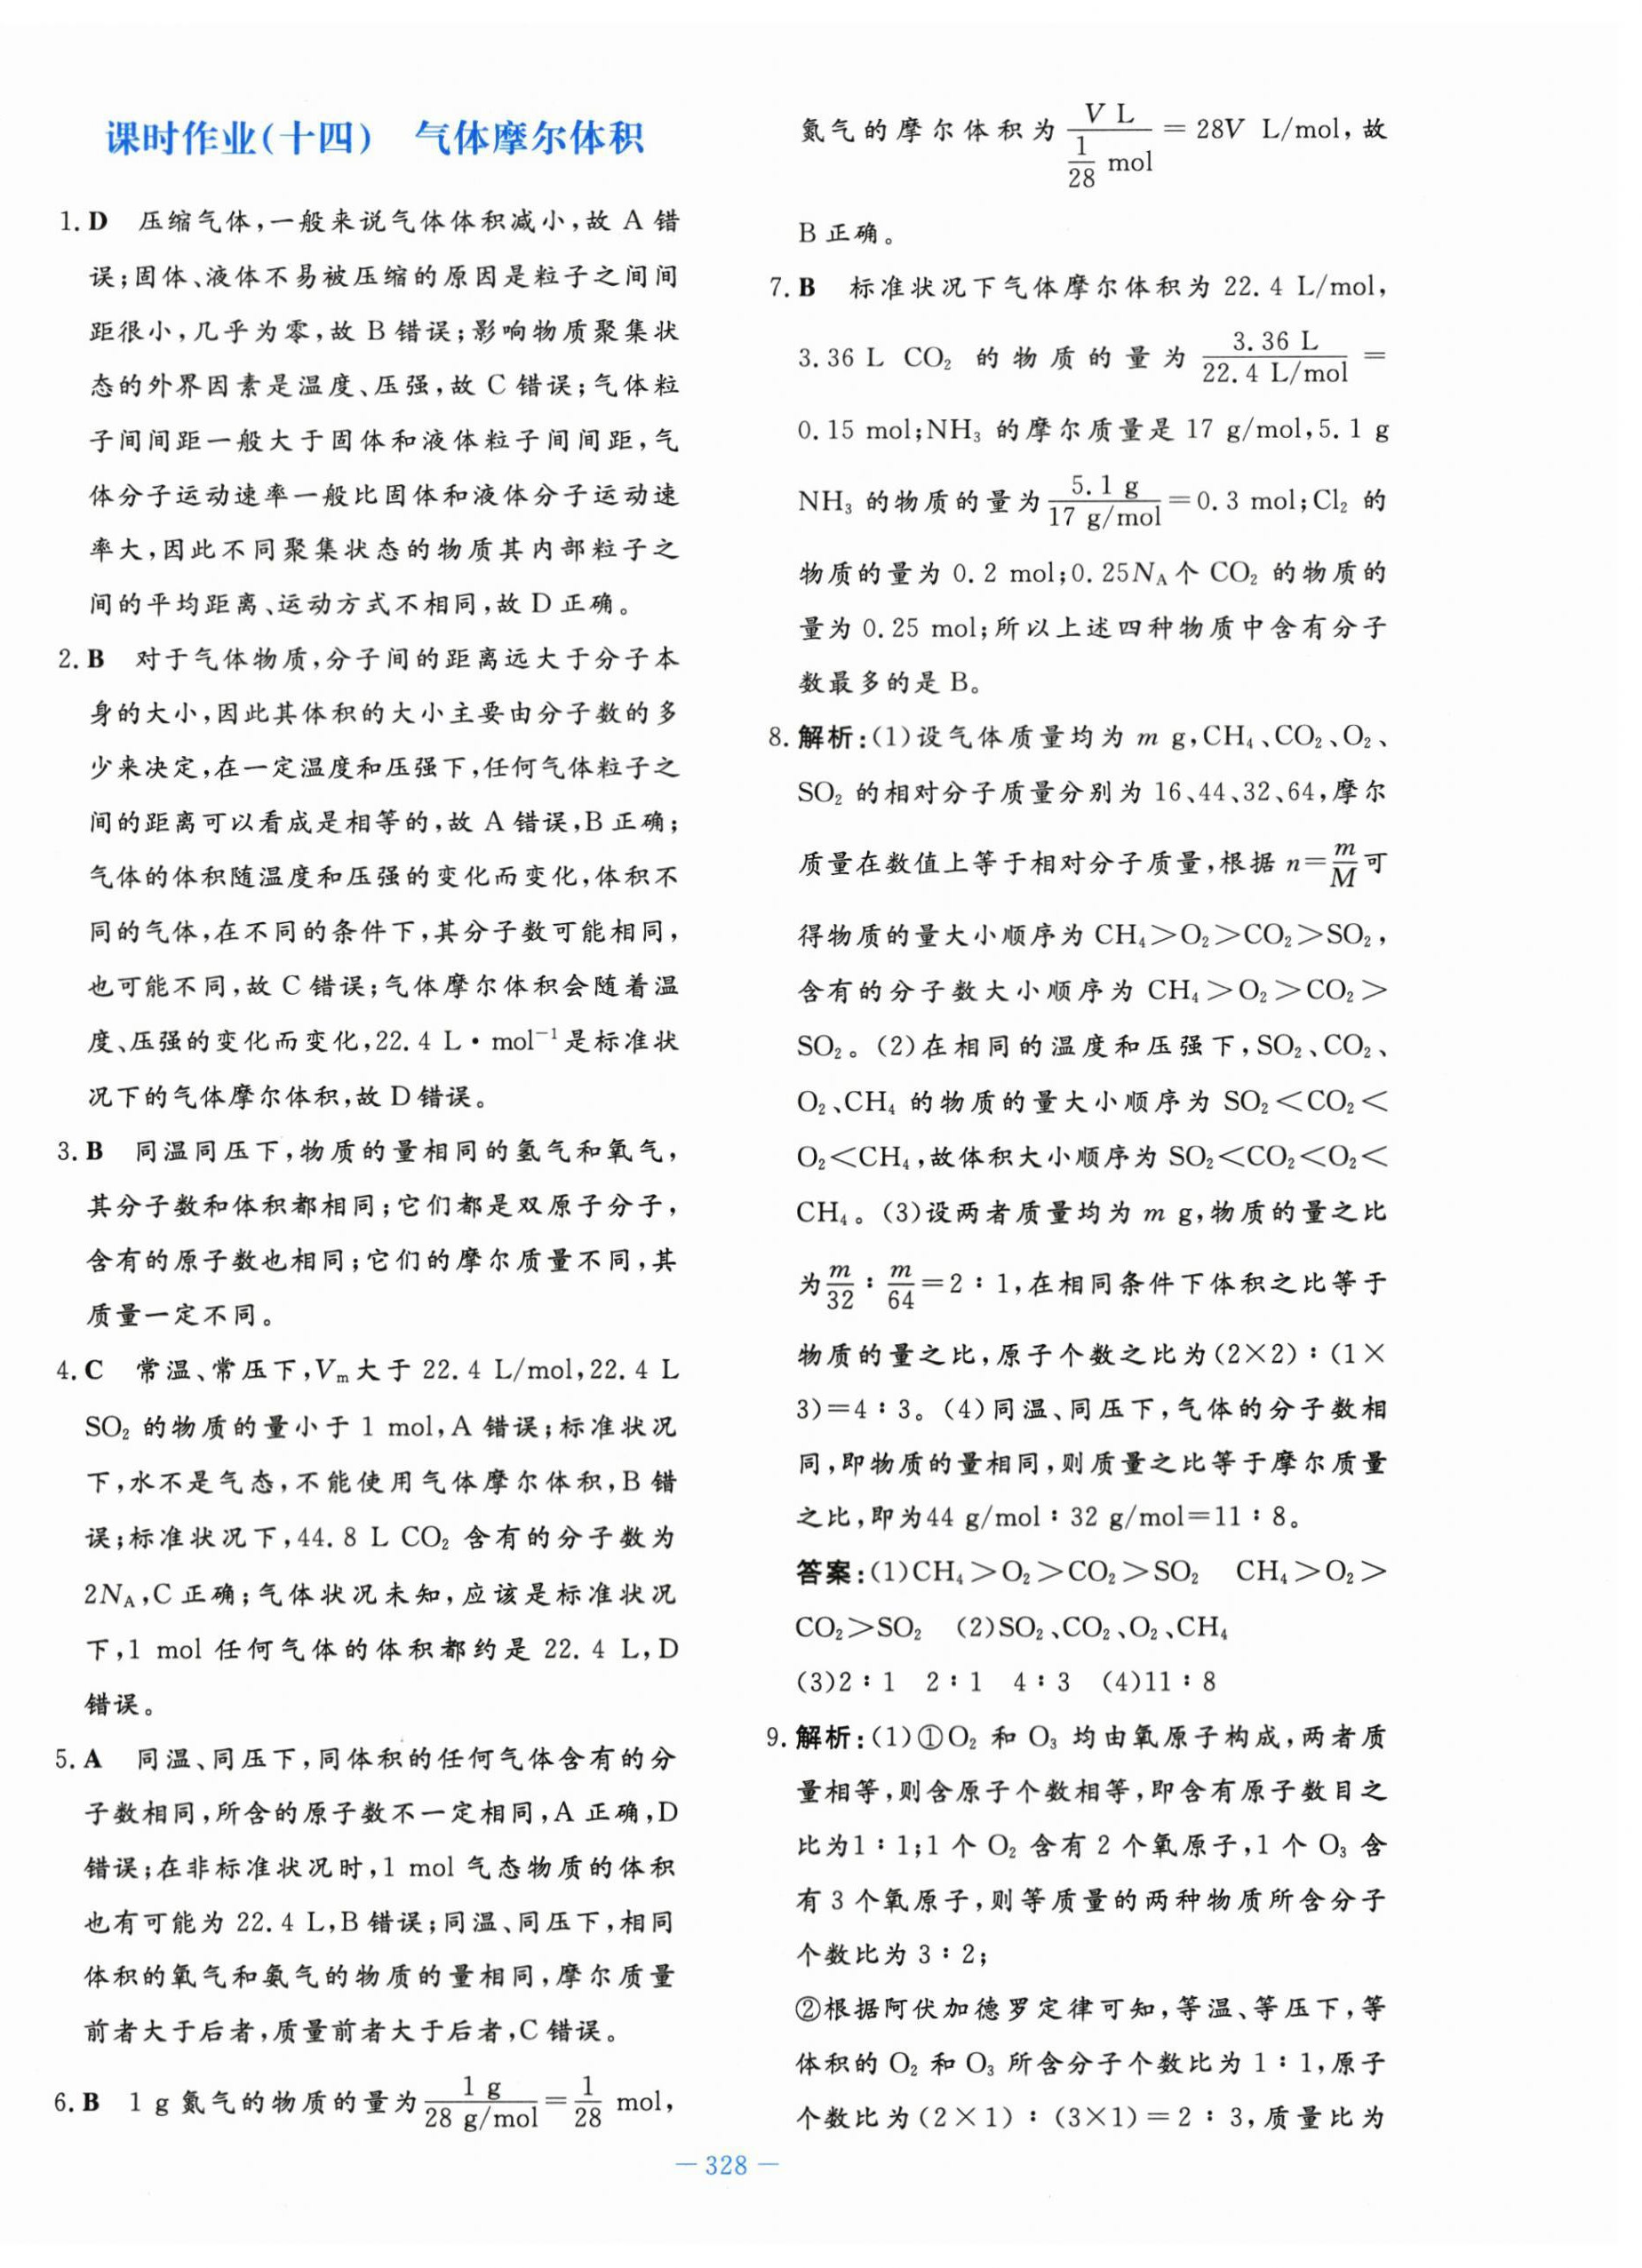 课时作业(十四) 气体摩尔体积
1. D 压缩气体,一般来说气体体积减小,故 A 错
误;固体、液体不易被压缩的原因是粒子之间间
距很小,几乎为零,故 B 错误;影响物质聚集状
态的外界因素是温度、压强,故 C 错误;气体粒
子间间距一般大于固体和液体粒子间间距,气
体分子运动速率一般比固体和液体分子运动速
率大,因此不同聚集状态的物质其内部粒子之
间的平均距离、运动方式不相同,故 D 正确。
2. B 对于气体物质,分子间的距离远大于分子本
身的大小,因此其体积的大小主要由分子数的多
少来决定,在一定温度和压强下,任何气体粒子之
间的距离可以看成是相等的,故 A 错误,B 正确;
气体的体积随温度和压强的变化而变化,体积不
同的气体,在不同的条件下,其分子数可能相同,
也可能不同,故 C 错误;气体摩尔体积会随着温
度、压强的变化而变化,22.4 L·mol⁻¹是标准状
况下的气体摩尔体积,故 D 错误。
3. B 同温同压下,物质的量相同的氢气和氧气,
其分子数和体积都相同;它们都是双原子分子,
含有的原子数也相同;它们的摩尔质量不同,其
质量一定不同。
4. C 常温、常压下,Vₘ大于 22.4 L/mol,22.4 L
SO₂ 的物质的量小于 1 mol,A 错误;标准状况
下,水不是气态,不能使用气体摩尔体积,B 错
误;标准状况下,44.8 L CO₂ 含有的分子数为
2N_A,C 正确;气体状况未知,应该是标准状况
下,1 mol 任何气体的体积都约是 22.4 L,D
错误。
5. A 同温、同压下,同体积的任何气体含有的分
子数相同,所含的原子数不一定相同,A 正确,D
错误;在非标准状况时,1 mol 气态物质的体积
也有可能为 22.4 L,B 错误;同温、同压下,相同
体积的氧气和氨气的物质的量相同,摩尔质量
前者大于后者,质量前者大于后者,C 错误。
6. B 1 g 氮气的物质的量为 \frac{1 g}{28 g/mol} = \frac{1}{28} mol,
氮气的摩尔体积为 \frac{V L}{\frac{1}{28} mol} = 28V L/mol,故
B 正确。
7. B 标准状况下气体摩尔体积为 22.4 L/mol,
3.36 L CO₂ 的物质的量为 \frac{3.36 L}{22.4 L/mol} =
0.15 mol;NH₃ 的摩尔质量是 17 g/mol,5.1 g
NH₃ 的物质的量为 \frac{5.1 g}{17 g/mol} = 0.3 mol;Cl₂ 的
物质的量为 0.2 mol;0.25N_A个 CO₂ 的物质的
量为 0.25 mol;所以上述四种物质中含有分子
数最多的是 B。
8. 解析:(1)设气体质量均为 m g,CH₄、CO₂、O₂、
SO₂ 的相对分子质量分别为 16、44、32、64,摩尔
质量在数值上等于相对分子质量,根据 n=\frac{m}{M}可
得物质的量大小顺序为 CH₄>O₂>CO₂>SO₂,
含有的分子数大小顺序为 CH₄>O₂>CO₂>
SO₂。(2)在相同的温度和压强下,SO₂、CO₂、
O₂、CH₄ 的物质的量大小顺序为 SO₂<CO₂<
O₂<CH₄,故体积大小顺序为 SO₂<CO₂<O₂<
CH₄。(3)设两者质量均为 m g,物质的量之比
为\frac{m}{32}:\frac{m}{64}=2:1,在相同条件下体积之比等于
物质的量之比,原子个数之比为(2×2):(1×
3)=4:3。(4)同温、同压下,气体的分子数相
同,即物质的量相同,则质量之比等于摩尔质量
之比,即为44 g/mol:32 g/mol=11:8。
答案:(1)CH₄>O₂>CO₂>SO₂ CH₄>O₂>
CO₂>SO₂ (2)SO₂、CO₂、O₂、CH₄
(3)2:1 2:1 4:3 (4)11:8
9. 解析:(1)①O₂ 和 O₃ 均由氧原子构成,两者质
量相等,则含原子个数相等,即含有原子数目之
比为1:1;1 个 O₂ 含有 2 个氧原子,1 个 O₃ 含
有 3 个氧原子,则等质量的两种物质所含分子
个数比为 3:2;
②根据阿伏加德罗定律可知,等温、等压下,等
体积的 O₂ 和 O₃ 所含分子个数比为 1:1,原子
个数比为(2×1):(3×1)=2:3,质量比为
— 328 —